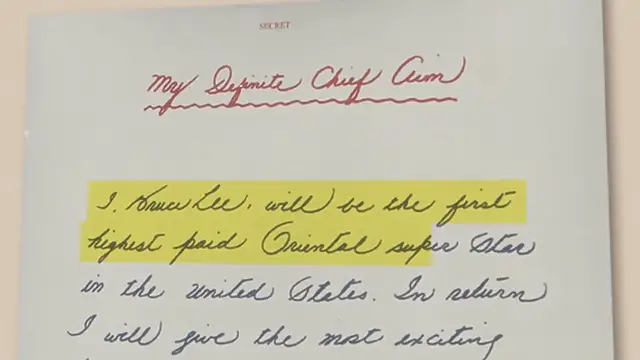 SECRET
My Definite Chief Aim
I, Bruce Lee, will be the first
highest paid Oriental super Star
in the united States. In return
I will give the most exciting